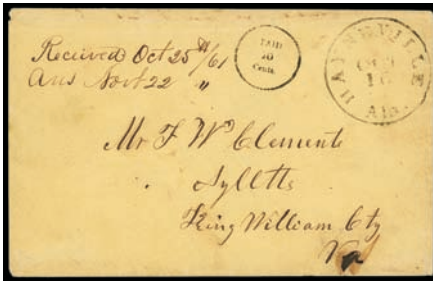 Received Oct 25th/61
Ans Novr 22 "
PAID
10
Cents.
HAYNEVILLE
OCT
16
Ala.
Mr F Wm Clements
Aylletts
King William Cty
Va